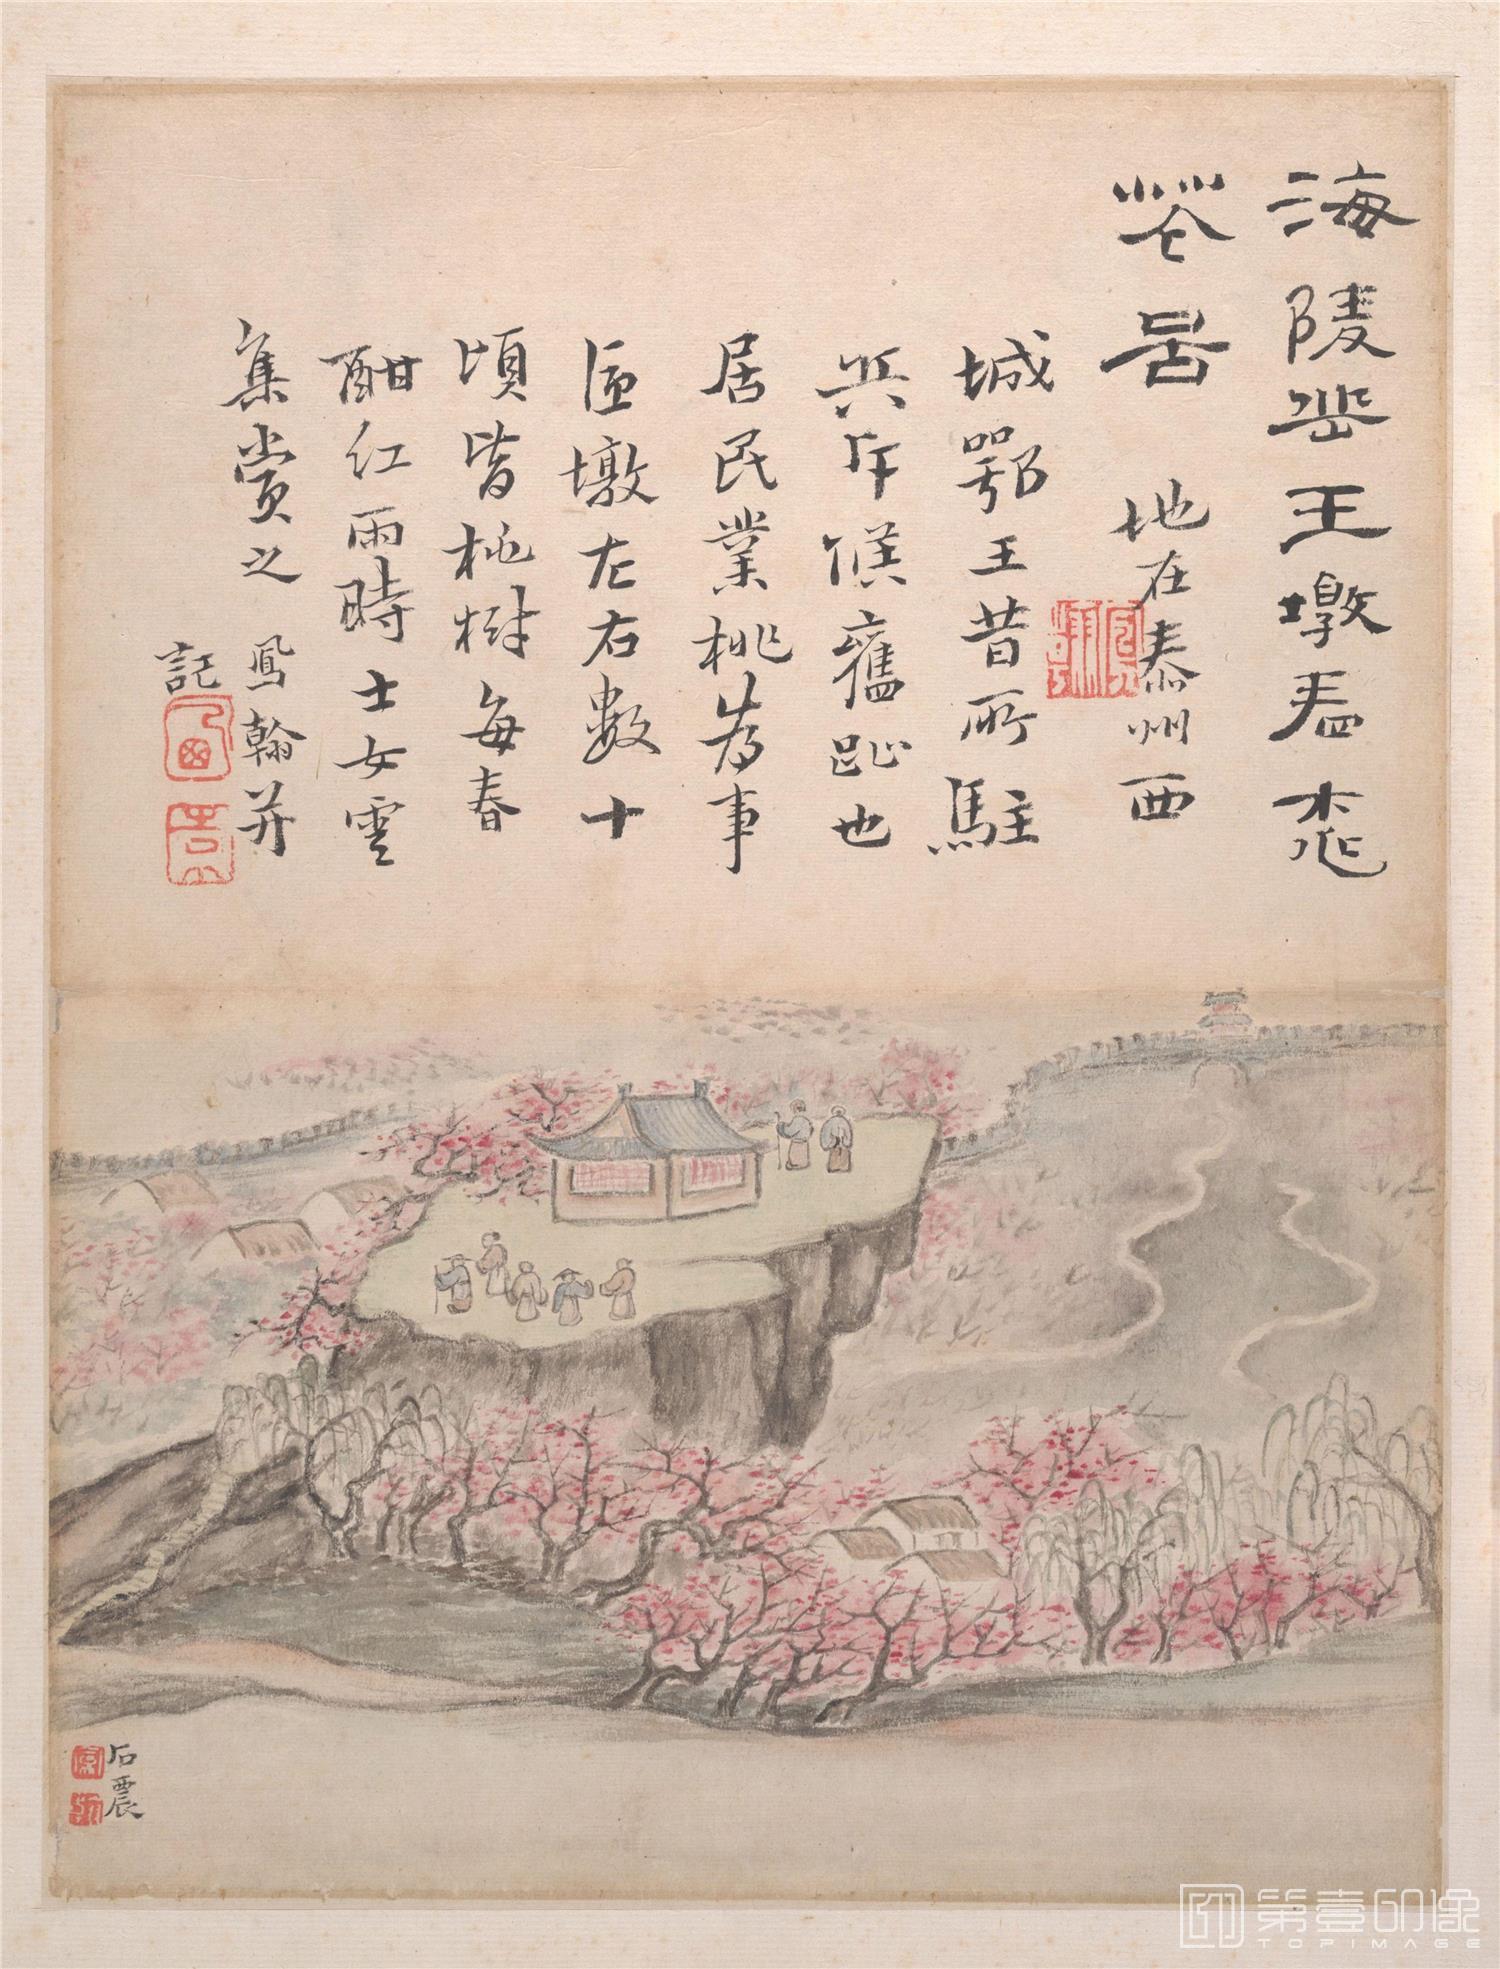 海陵岳王墩看桃
芲啚 地在泰州西
城鄂王昔所駐
兵斥候舊趾也
居民業桃為事
匝墩左右數十
頃皆桃樹每春
酣紅雨時士女雲
集賞之 鳳翰并
記
石農
第壹印像
TOPIMAGE